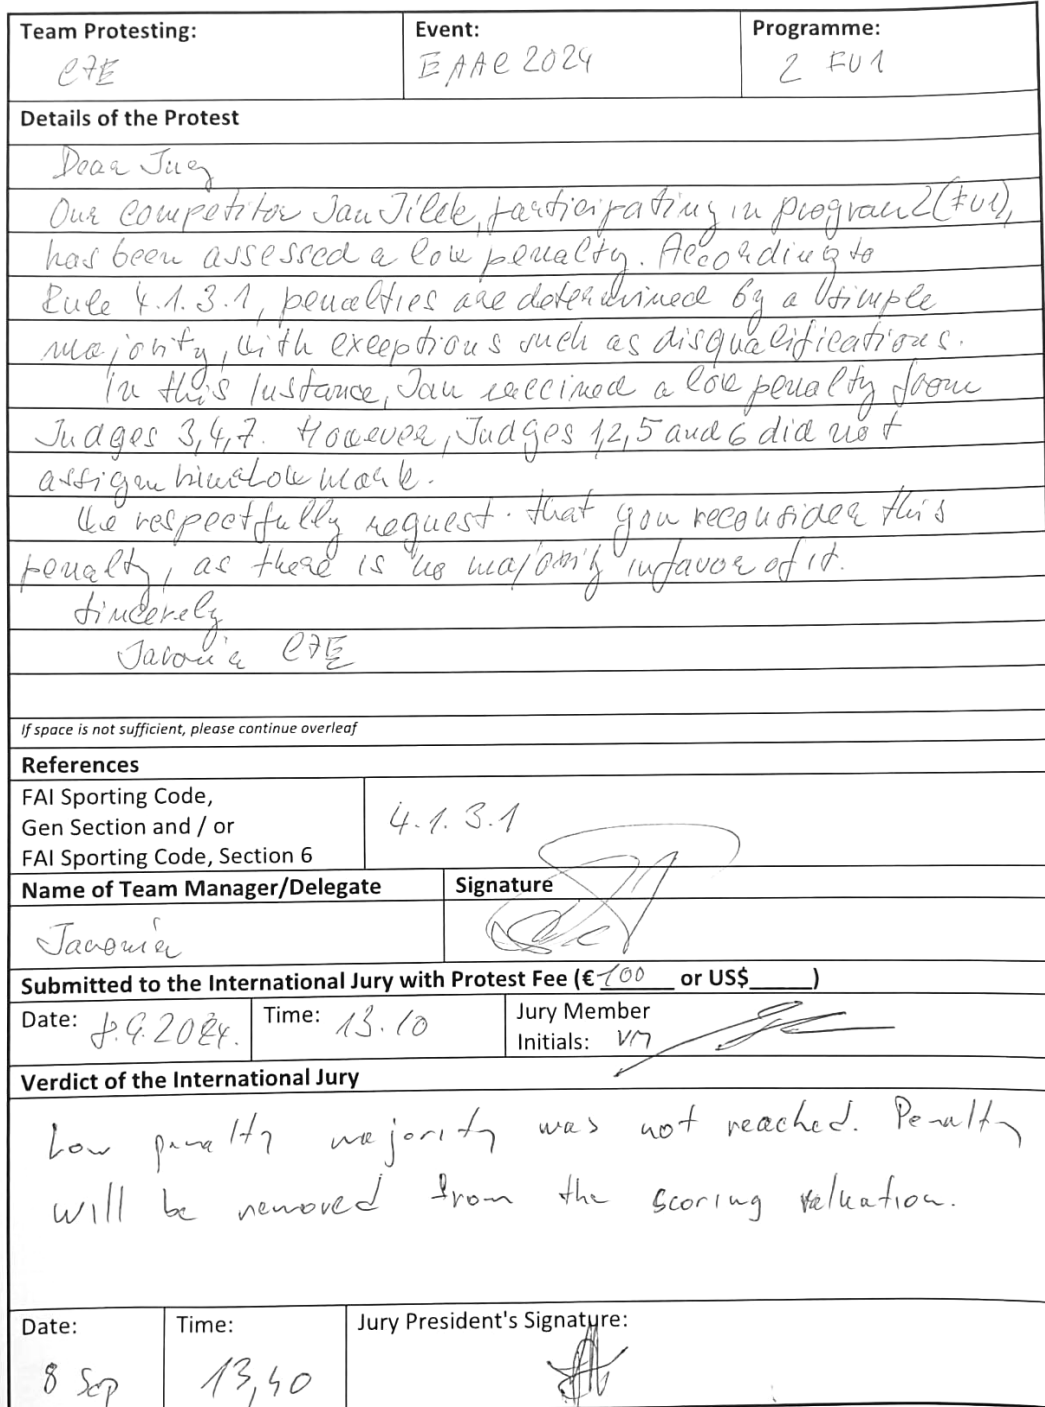 Team Protesting:
CZE
Event:
EAAC 2024
Programme:
2 FU1
Details of the Protest
Dear Jury
Our competitor Jan Jilek, participating in program 2 (FU1),
has been assessed a low penalty. According to
Rule 4.1.3.1, penalties are determined by a simple
majority, with exceptions such as disqualifications.
In this instance, Jan received a low penalty from
Judges 3,4,7. However, Judges 1,2,5 and 6 did not
assign him a low mark.
We respectfully request that you reconsider this
penalty, as there is no majority in favor of it.
Sincerely
CZE
If space is not sufficient, please continue overleaf
References
FAI Sporting Code,
Gen Section and / or
FAI Sporting Code, Section 6
4.1.3.1
Name of Team Manager/Delegate
Signature
Submitted to the International Jury with Protest Fee (€ 100 or US$_____)
Date: 8.9.2024.
Time: 13.10
Jury Member
Initials: VM
Verdict of the International Jury
Low penalty majority was not reached. Penalty
will be removed from the scoring valuation.
Date:
8 Sep
Time:
13,40
Jury President's Signature: